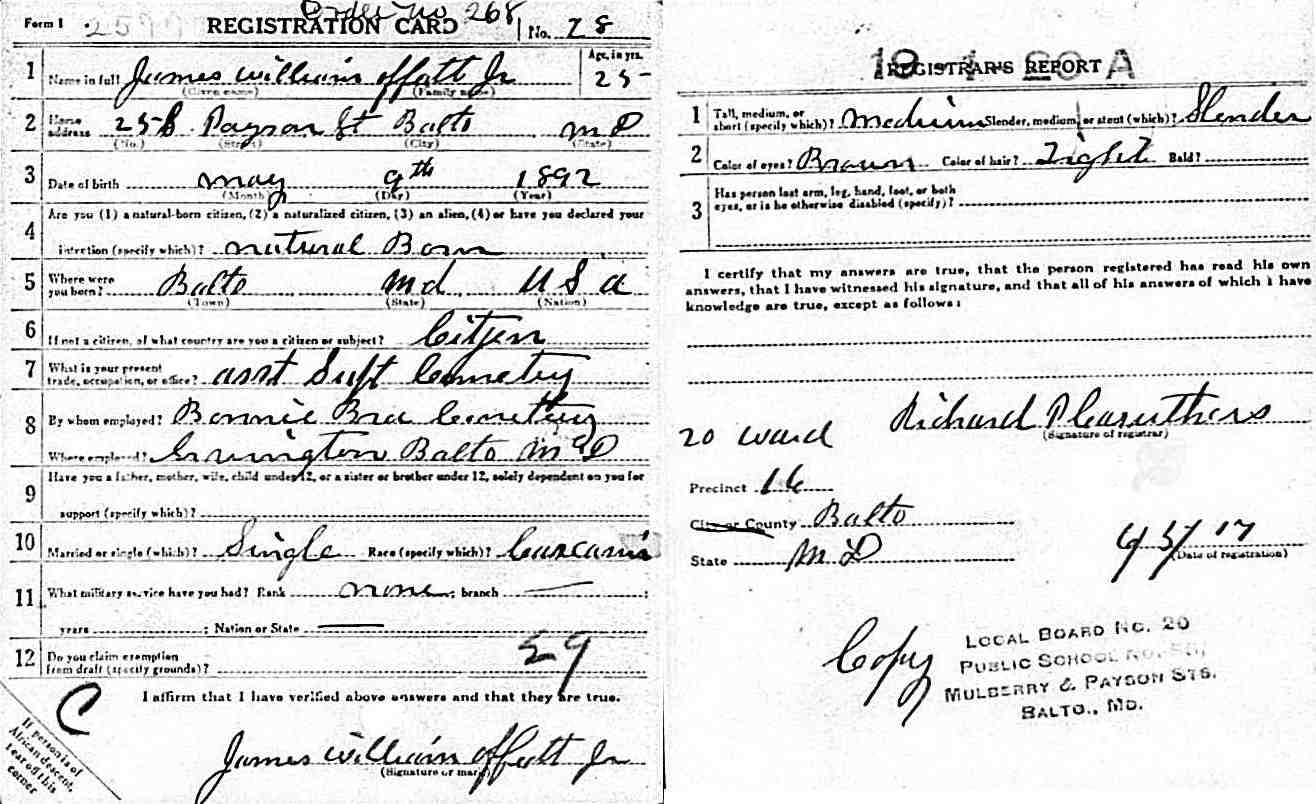 Order No 268
Form 1 REGISTRATION CARD No. 28
1 Name in full James William Offatt Jr Age, in yrs. 25
(Given name) (Family name)
2 Home address Payson St Balto MD
(No.) (Street) (City) (State)
3 Date of birth May 9th 1892
(Month) (Day) (Year)
4 Are you (1) a natural-born citizen, (2) a naturalized citizen, (3) an alien, (4) or have you declared your
intention (specify which)? natural Born
5 Where were you born? Balto Md U S a
(Town) (State) (Nation)
6 If not a citizen, of what country are you a citizen or subject? Citizen
7 What is your present
trade, occupation, or office? asst Supt Cemetry
8 By whom employed? Bonnie Bra Cemetery
Where employed? Irvington Balto Md
9 Have you a father, mother, wife, child under 12, or a sister or brother under 12, solely dependent on you for
support (specify which)?
10 Married or single (which)? Single Race (specify which)?
11 What military service have you had? Rank none; branch —;
years ; Nation or State —
12 Do you claim exemption
from draft (specify grounds)?
59
I affirm that I have verified above answers and that they are true.
C
If person is of
African descent,
tear off this
corner
James William Offatt Jr
(Signature or mark)
REGISTRAR'S REPORT
1 Tall, medium, or
short (specify which)? Medium Slender, medium, or stout (which)? Slender
2 Color of eyes? Brown Color of hair? Light Bald?
3 Has person lost arm, leg, hand, foot, or both
eyes, or is he otherwise disabled (specify)?
I certify that my answers are true, that the person registered has read his own
answers, that I have witnessed his signature, and that all of his answers of which I have
knowledge are true, except as follows:
Richard P Caruthers
(Signature of registrar)
20 ward
Precinct 16
City or County Balto
State MD
6/5/17
(Date of registration)
Copy
LOCAL BOARD NO. 20
PUBLIC SCHOOL NO.
MULBERRY & PAYSON STS.
BALTO., MD.